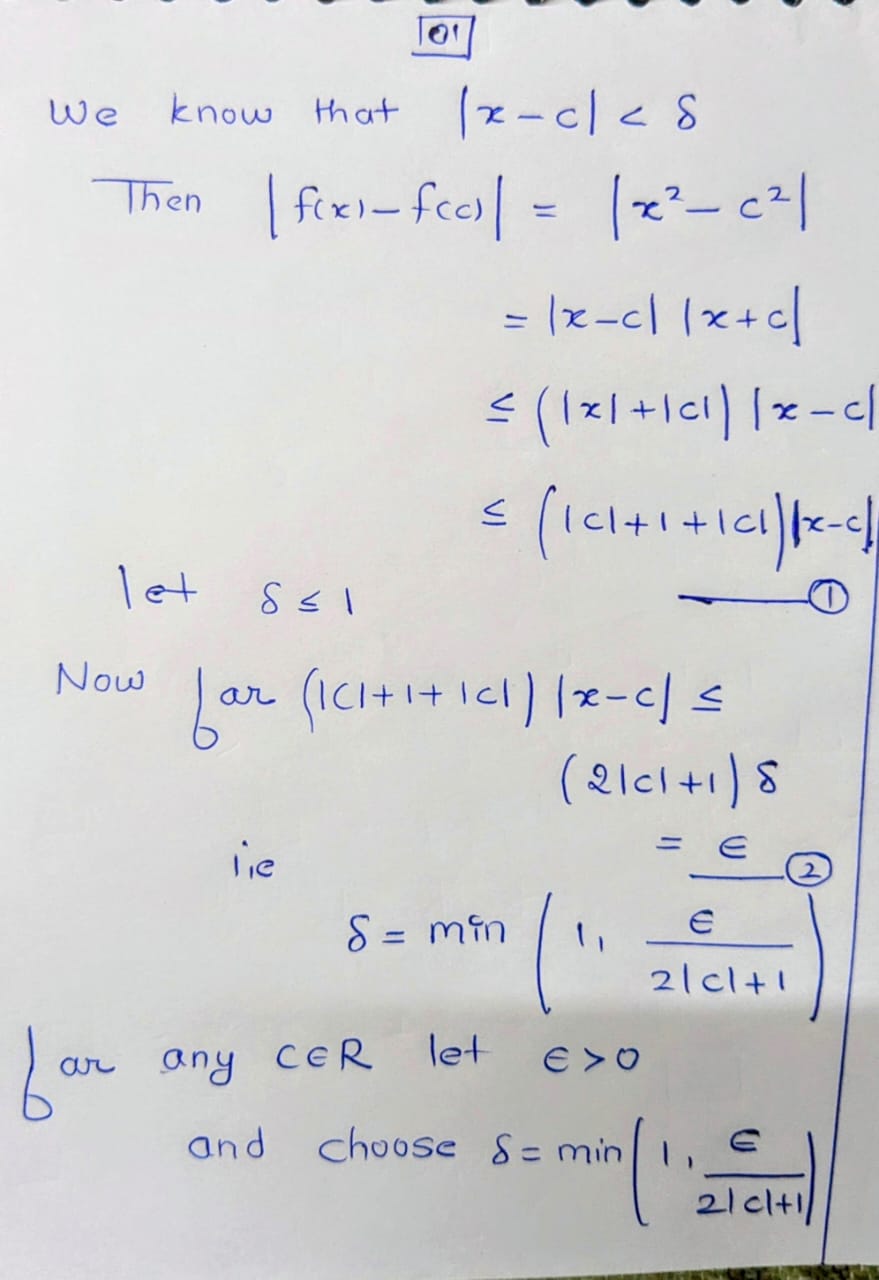 01
We know that |x-c| < δ
Then |f(x)-f(c)| = |x²-c²|
= |x-c| |x+c|
≤ (|x|+|c|) |x-c|
≤ (|c|+1+|c|)|x-c|
let δ ≤ 1 ——①
Now for (|c|+1+|c|) |x-c| ≤
(2|c|+1) δ
= ϵ ②
i.e
δ = min (1, ϵ/2|c|+1)
for any c∈R let ϵ>0
and choose δ = min(1, ϵ/2|c|+1)